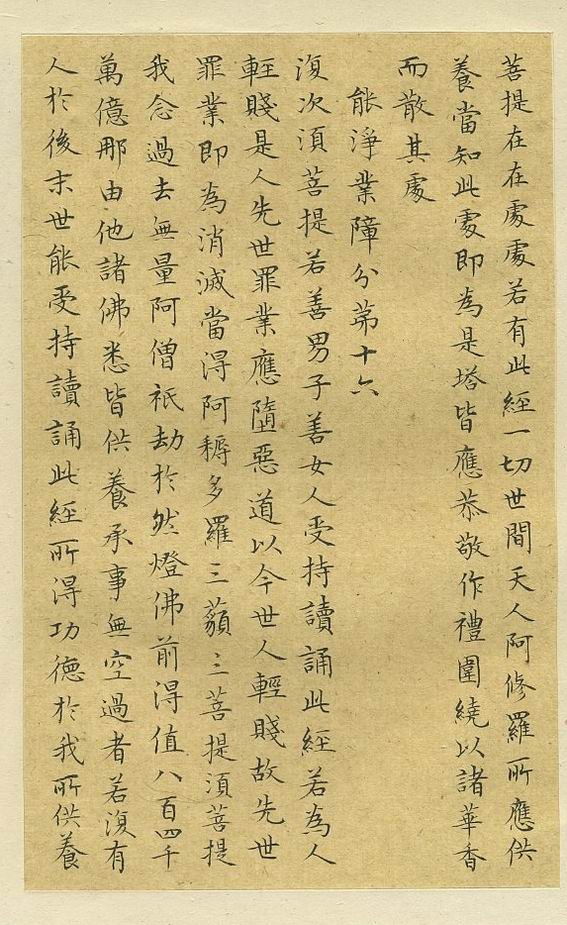 菩提在在處處若有此經一切世間天人阿修羅所應供
養當知此處即為是塔皆應恭敬作禮圍繞以諸華香
而散其處
能淨業障分第十六
復次須菩提若善男子善女人受持讀誦此經若為人
輕賤是人先世罪業應墮惡道以今世人輕賤故先世
罪業即為消滅當得阿耨多羅三藐三菩提須菩提
我念過去無量阿僧祇劫於然燈佛前得值八百四千
萬億那由他諸佛悉皆供養承事無空過者若復有
人於後末世能受持讀誦此經所得功德於我所供養